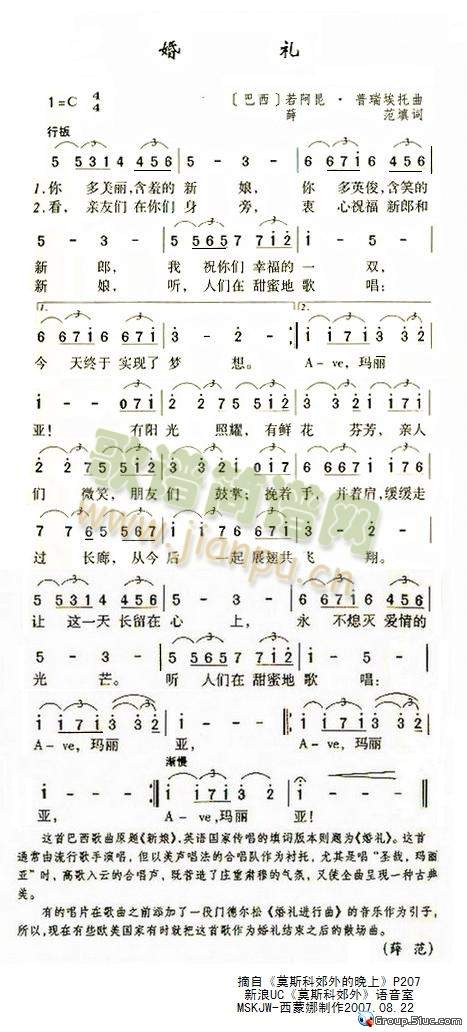 婚 礼
1=C 4/4
〔巴西〕若阿昆·普瑞埃托曲
薛 范填词
行板
5 5 3 1 4 4 5 6 | 5 - 3 - | 6 6 7 i 6 4 5 6 |
1.你 多美丽,含羞的 新 娘, 你 多英俊,含笑的
2.看, 亲友们 在你们 身 旁, 衷 心祝福 新郎和
5 - 3 - | 5 5 6 5 7 7 i 2 | i - 5 - |
新 郎, 我 祝你们 幸福的 一 双,
新 娘, 听, 人们在 甜蜜地 歌 唱:
1. 2.
6 6 7 i 6 6 7 i | 2 - - - :| i i 7 i 3 3 2 |
今 天终于 实现了 梦 想。 A-ve,玛丽
i - - 0 7 i | 2 2 7 5 5 i 2 | 3 3 2 i 6 7 i |
亚! 有阳光 照耀,有鲜花 芬芳,亲人
们 微笑,朋友们 鼓掌;挽着手,并着肩,缓缓走
过 长廊,从今后 一起展翅共飞 翔。
5 5 3 1 4 4 5 6 | 5 - 3 - | 6 6 7 i 6 4 5 6 |
让 这一天 长留在 心 上, 永 不熄灭 爱情的
5 - 3 - | 5 5 6 5 7 7 i 2 | i - 5 - |
光 芒。 听 人们在 甜蜜地 歌 唱:
i i 7 i 3 3 2 | i - - - | i i 7 i 3 3 2 |
A-ve,玛丽 亚, A-ve,玛丽
渐慢
i - - - | i i 7 i 3 3 2 | i - - - ‖
亚, A-ve,玛丽 亚!
这首巴西歌曲原题《新娘》,英语国家传唱的填词版本则题为《婚礼》。这首
通常由流行歌手演唱,但以美声唱法的合唱队作为衬托,尤其是唱“圣哉,玛丽
亚”时,高歌入云的合唱声,既营造了庄重肃穆的气氛,又使全曲呈现一种古典
美。
有的唱片在歌曲之前添加了一段门德尔松《婚礼进行曲》的音乐作为引子,
所以,现在有些欧美国家有时就把这首歌作为婚礼结束之后的散场曲。
(薛 范)
摘自《莫斯科郊外的晚上》P207
新浪UC《莫斯科郊外》语音室
MSKJW-西蒙娜制作2007.08.22
歌谱简谱网
www.jianpu.cn
Group.51uc.com